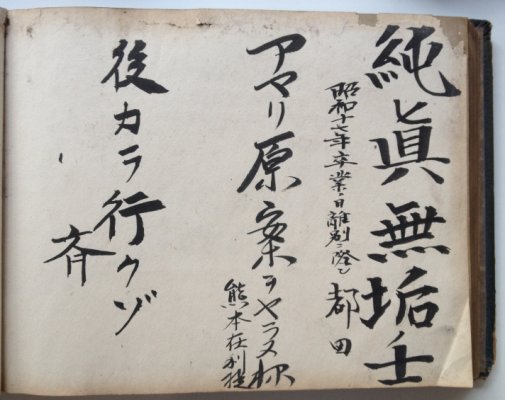 純眞無垢士
昭和十七年卒業ノ日離別ニ際シ 都田
アマリ原案ヲヤラヌ様
熊本在
後カラ行クゾ
斉